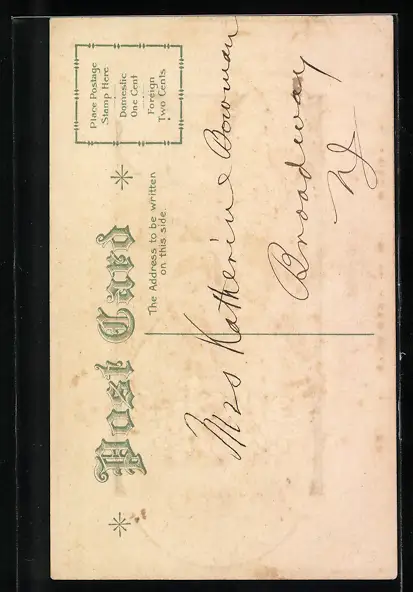 Post Card
Place Postage
Stamp Here
Domestic
One Cent
Foreign
Two Cents
The Address to be written
on this side.
Mrs Katherine Bowman
Broadway
NJ